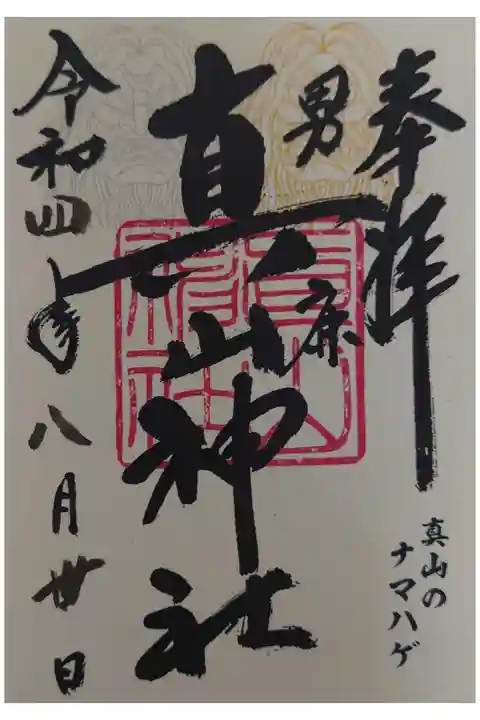 奉拝
男鹿
真山神社
令和四年八月廿日
真山の
ナマハゲ
真山
神社